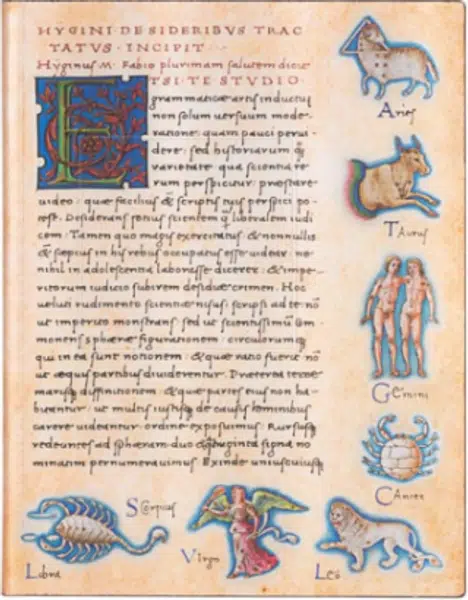 HYGINI·DE SIDERIBVS TRAC
TATVS·INCIPIT·
Hyginus M. Fabio plurimam salutem dicit
ETSI TE STVDIO·
grammaticæ artis inductus
non solum versuum mode-
ratione: quam pauci pervi-
dere: sed historiarum qq̃
varietate qua scientia re-
rum perspicitur, præstare
video: quæ facilius & scriptis tuis perspici po-
test. Desiderans potius scientem q̃ liberalem iudi
cem: Tamen quo magis exercitatus & nonnullis
& sæpius in his rebus occupatus esse videar: ne
nihil in adolescentia laborasse dicerer: & impe-
ritorum iudicio subirem desidiæ crimen. Hoc
veluti rudimento scientiæ nisus: scripsi ad te: nõ
ut imperito monstrans: sed ut scientissimũ com
monens sphæræ figurationem: circulorumq
qui in ea sunt notionem: & quæ ratio fuerit nõ
ut æquis partibus dividerentur. Præterea terræ
marisq diffinitionem: & quæ partes eius non ha-
bitantur: ut multis iustisq de causis hominibus
carere videantur: ordine exposuimus. Rursusq
redeuntes ad sphæram duo & quadraginta signa no
minatim pernumeravimus. Exinde uniuscuiusq
Aries
Taurus
Gemini
Cancer
Scorpius
Libra
Virgo
Leo